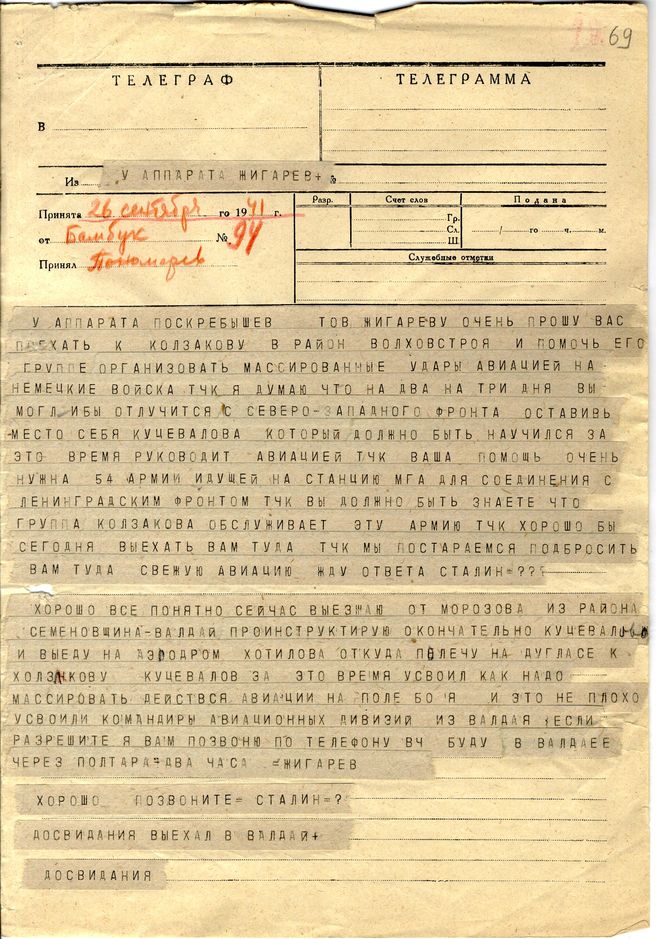 69
ТЕЛЕГРАФ
ТЕЛЕГРАММА
В
Из У АППАРАТА ЖИГАРЕВ+ №
Принята 26 сентября го 1941 г.
от Бамбук № 94
Принял Пономарев
Разр. Счет слов Подана
Гр.
Сл. / го ч. м.
Ш.
Служебные отметки
У АППАРАТА ПОСКРЕБЫШЕВ ТОВ ЖИГАРЕВУ ОЧЕНЬ ПРОШУ ВАС
ПОЕХАТЬ К КОЛЗАКОВУ В РАЙОН ВОЛХОВСТРОЯ И ПОМОЧЬ ЕГО
ГРУППЕ ОРГАНИЗОВАТЬ МАССИРОВАННЫЕ УДАРЫ АВИАЦИЕЙ НА
НЕМЕЦКИЕ ВОЙСКА ТЧК Я ДУМАЮ ЧТО НА ДВА НА ТРИ ДНЯ ВЫ
МОГЛ ИБЫ ОТЛУЧИТСЯ С СЕВЕРО-ЗАПАДНОГО ФРОНТА ОСТАВИВЬ
МЕСТО СЕБЯ КУЦЕВАЛОВА КОТОРЫЙ ДОЛЖНО БЫТЬ НАУЧИЛСЯ ЗА
ЭТО ВРЕМЯ РУКОВОДИТ АВИАЦИЕЙ ТЧК ВАША ПОМОЩЬ ОЧЕНЬ
НУЖНА 54 АРМИИ ИДУЩЕЙ НА СТАНЦИЮ МГА ДЛЯ СОЕДИНЕНИЯ С
ЛЕНИНГРАДСКИМ ФРОНТОМ ТЧК ВЫ ДОЛЖНО БЫТЬ ЗНАЕТЕ ЧТО
ГРУППА КОЛЗАКОВА ОБСЛУЖИВАЕТ ЭТУ АРМИЮ ТЧК ХОРОШО БЫ
СЕГОДНЯ ВЫЕХАТЬ ВАМ ТУДА ТЧК МЫ ПОСТАРАЕМСЯ ПОДБРОСИТЬ
ВАМ ТУДА СВЕЖУЮ АВИАЦИЮ ЖДУ ОТВЕТА СТАЛИН=???
ХОРОШО ВСЕ ПОНЯТНО СЕЙЧАС ВЫЕЗЖАЮ ОТ МОРОЗОВА ИЗ РАЙОНА
СЕМЕНОВЩИНА-ВАЛДАЙ ПРОИНСТРУКТИРУЮ ОКОНЧАТЕЛЬНО КУЦЕВАЛОВА
И ВЫЕДУ НА АЭРОДРОМ ХОТИЛОВА ОТКУДА ПОЛЕЧУ НА ДУГЛАСЕ К
ХОЛЗАКОВУ КУЦЕВАЛОВ ЗА ЭТО ВРЕМЯ УСВОИЛ КАК НАДО
МАССИРОВАТЬ ДЕЙСТВСЯ АВИАЦИИ НА ПОЛЕ БО'Я И ЭТО НЕ ПЛОХО
УСВОИЛИ КОМАНДИРЫ АВИАЦИОННЫХ ДИВИЗИЙ ИЗ ВАЛДАЯ ЕСЛИ
РАЗРЕШИТЕ Я ВАМ ПОЗВОНЮ ПО ТЕЛЕФОНУ ВЧ БУДУ В ВАЛДАЕЕ
ЧЕРЕЗ ПОЛТАРА=ДВА ЧАСА =ЖИГАРЕВ
ХОРОШО ПОЗВОНИТЕ= СТАЛИН=?
ДОСВИДАНИЯ ВЫЕХАЛ В ВАЛДАЙ+
ДОСВИДАНИЯ